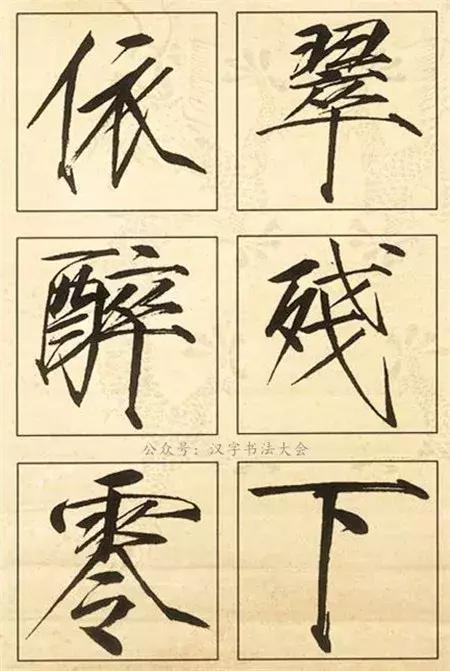 依翠
醉残
公众号：汉字书法大会
零下